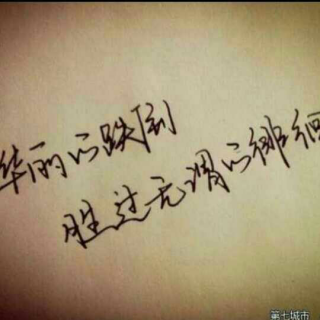 华丽的跌倒
胜过无谓的徘徊
第七城市